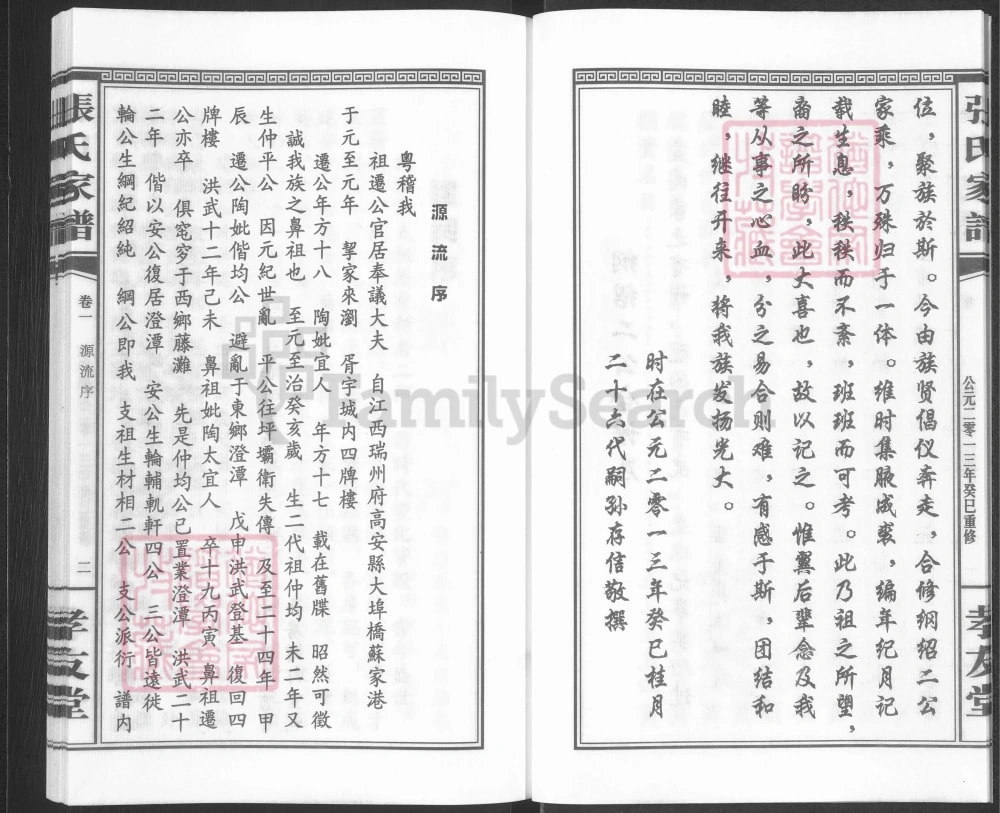 張氏家譜
公元二零一三年癸巳重修
孝友堂
位，聚族於斯。今由族贤倡仪奔走，合修纲绍二公
家乘，万殊归于一体。维时集腋成裘，编年纪月记
载生息，秩秩而不紊，班班而可考。此乃祖之所望，
裔之所盼，此大喜也，故以记之。惟冀后辈念及我
等从事之心血，分之易合则难，有感于斯，团结和
睦，继往开来，将我族发扬光大。
时在公元二零一三年癸巳桂月
二十六代嗣孙存信敬撰
源流序
粵稽我
祖遷公官居奉議大夫 自江西瑞州府高安縣大埠橋蘇家港
于元至元年 挈家來瀏 胥宇城内四牌樓
遷公年方十八 陶妣宜人 年方十七 載在舊牒 昭然可徵
誠我族之鼻祖也 至元至治癸亥歲 生二代祖仲均 未二年又
生仲平公 因元紀世亂 平公往坪壩衛失傳 及至二十四年 甲
辰 遷公陶妣偕均公 避亂于東鄉澄潭 戊申洪武登基 復回四
牌樓 洪武十二年己未 鼻祖妣陶太宜人 卒十九丙寅 鼻祖遷
公亦卒 俱窀穸于西鄉藤灘 先是仲均公已置業澄潭 洪武二十
二年 偕以安公復居澄潭 安公生輪輔軌軒四公 三公皆遠徙
輪公生綱紀紹純 綱公即我 支祖生材相二公 支公派衍 譜内
張氏家譜
卷一 源流序
二
孝友堂
FamilySearch